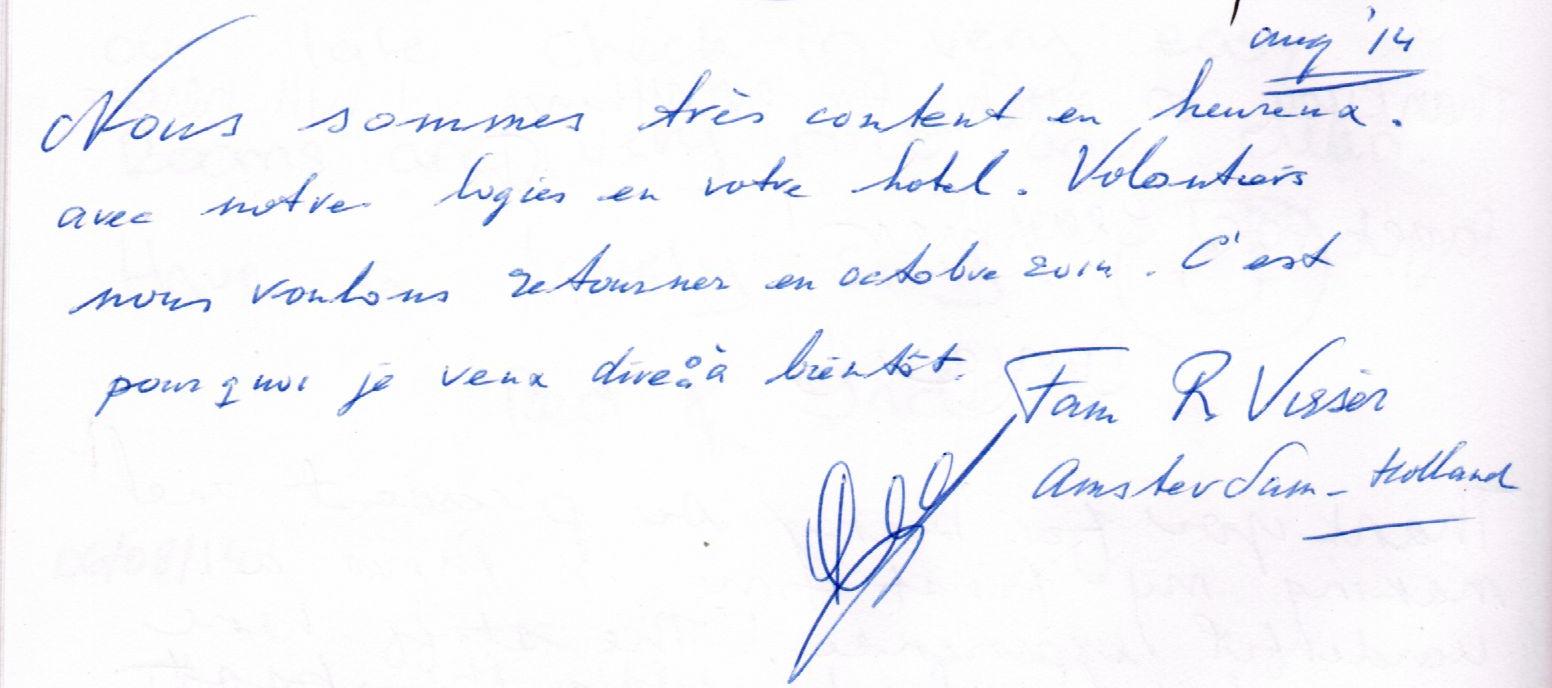 aug '14
Nous sommes très content en heureux.
avec notre logies en votre hotel. Volontiers
nous voulons retourner en octobre 2014. C'est
pourquoi je veux dire: à bientôt.
Fam R Visser
Amsterdam - Holland